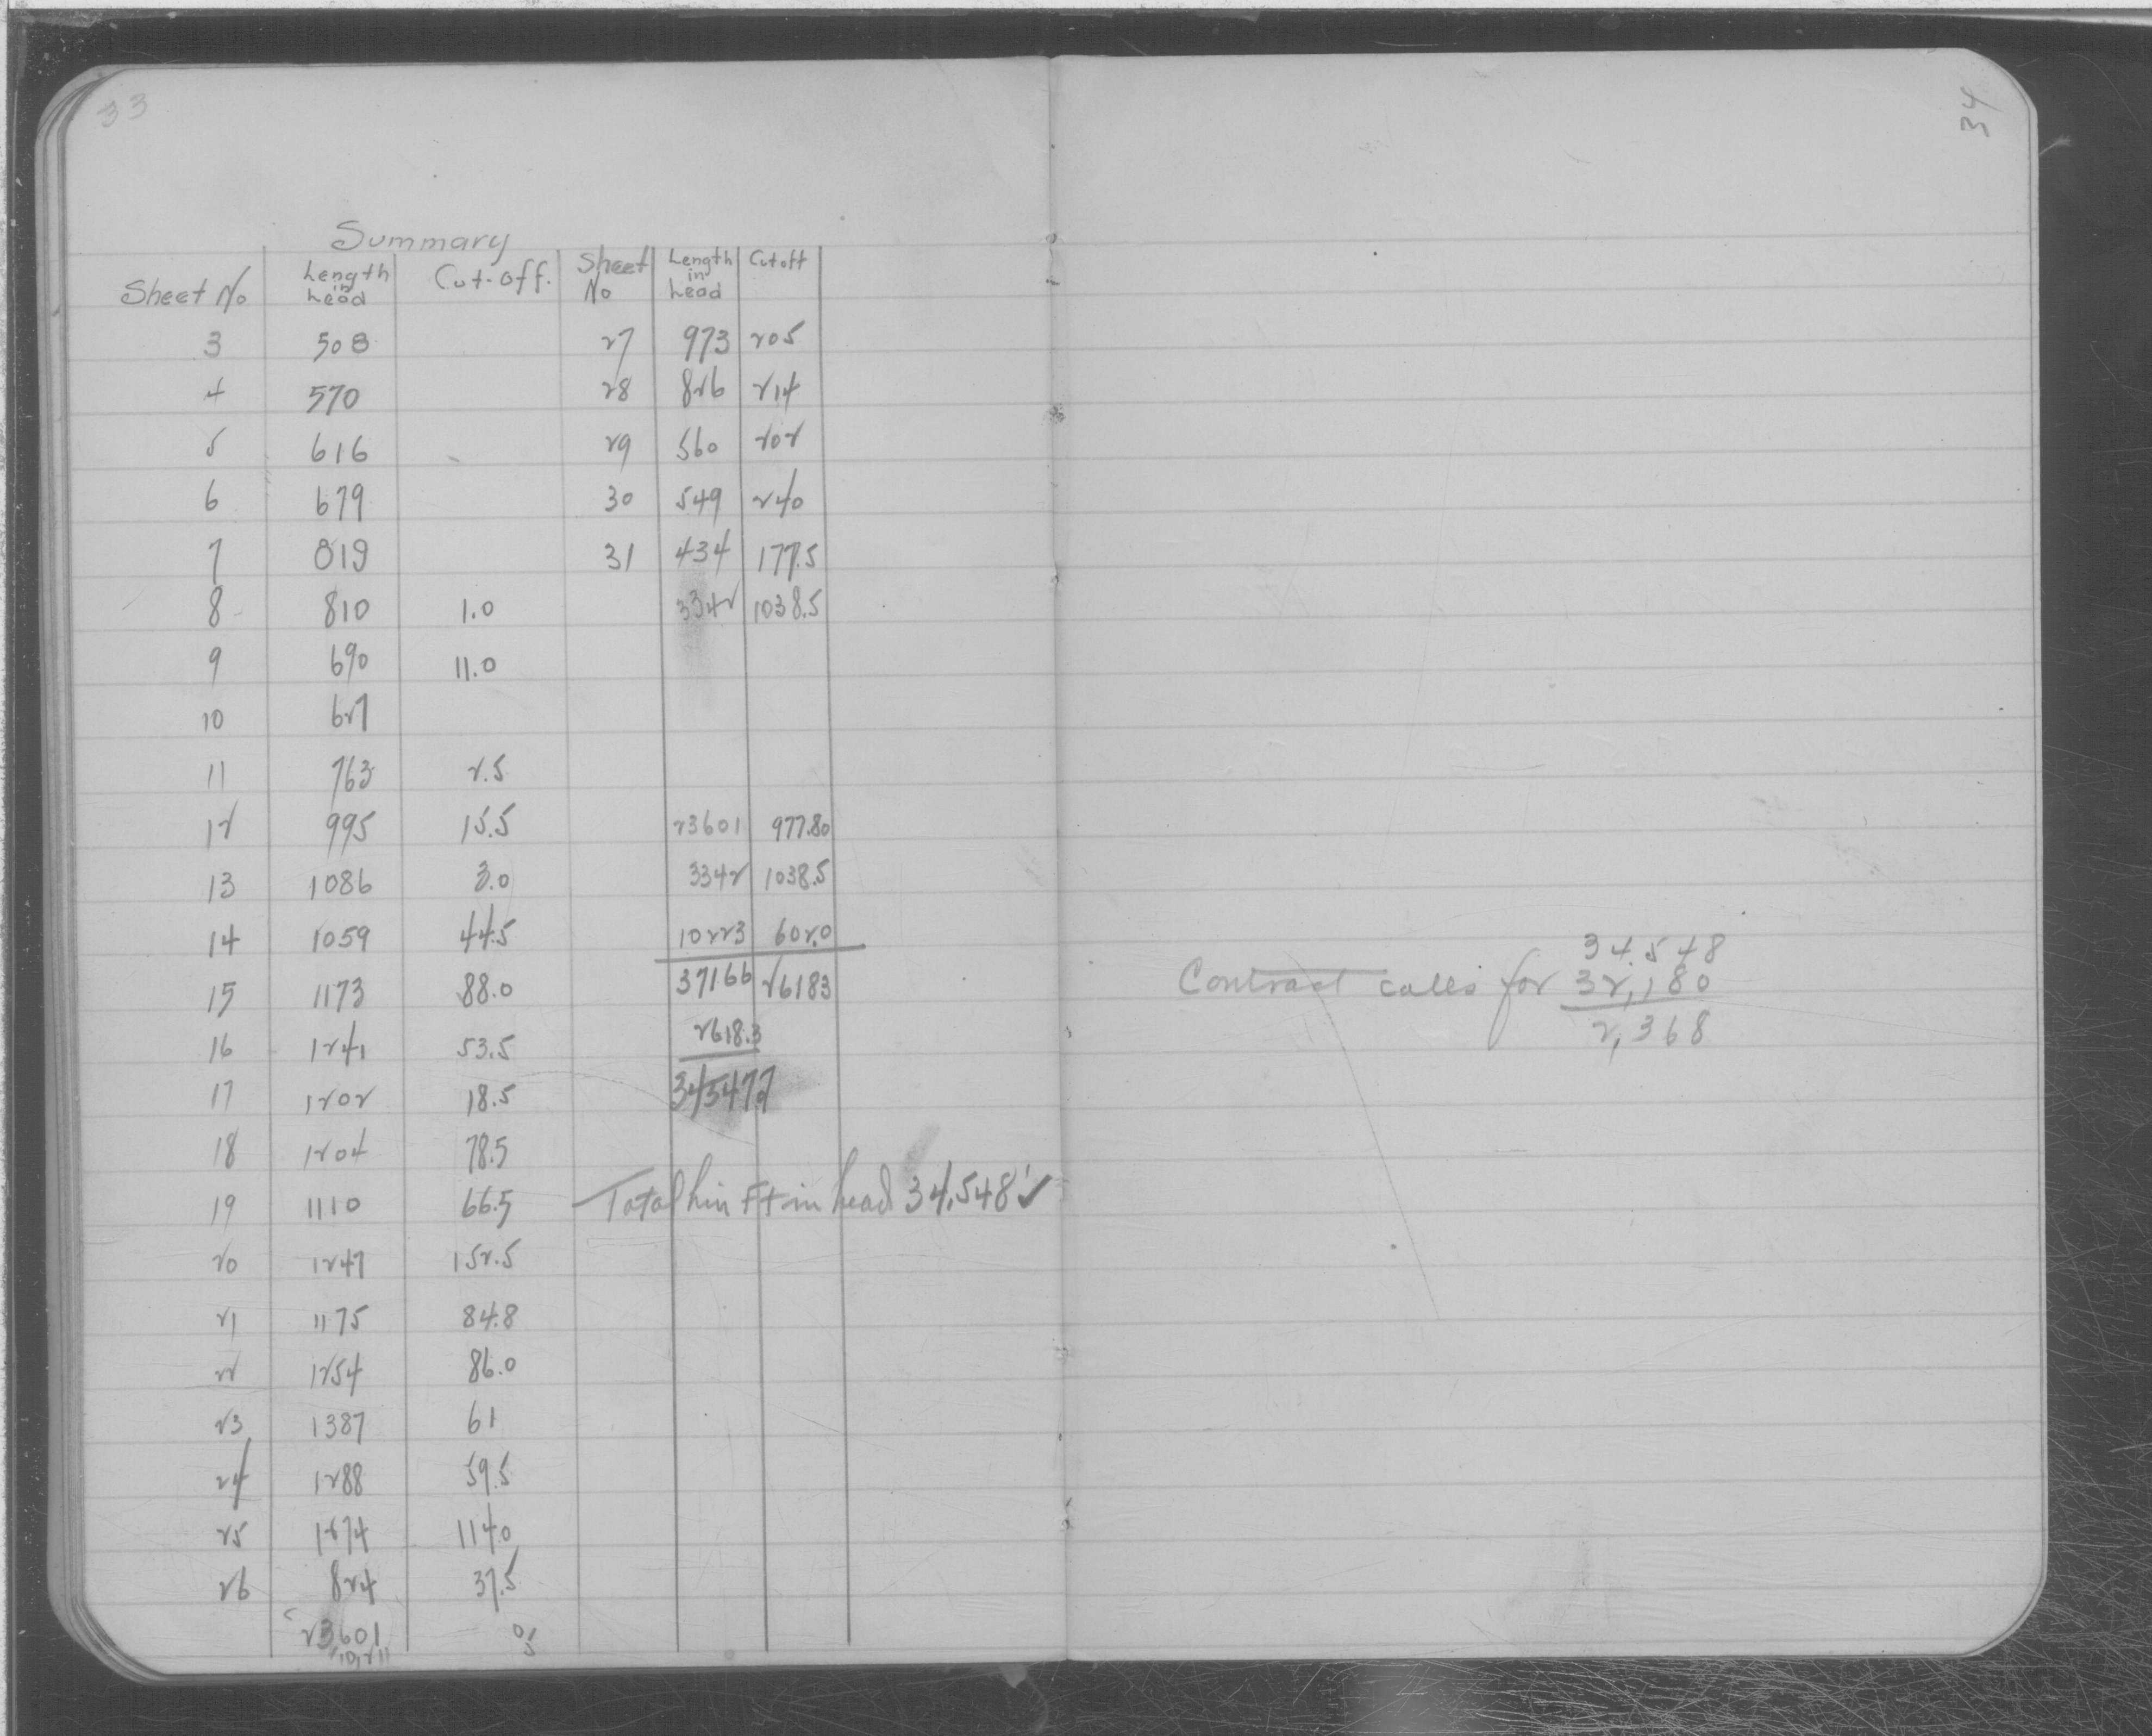 33
34
Summary
Sheet No Length in Lead Cut-off. Sheet No Length in Lead Cutoff
3 508 27 973 205
4 570 28 826 214
5 616 29 560 202
6 679 30 549 240
7 819 31 434 177.5
8 810 1.0 3342 1038.5
9 690 11.0
10 627
11 763 2.5
12 995 15.5 23601 977.80
13 1086 3.0 3342 1038.5
14 1059 44.5 10223 602.0
15 1173 88.0 37166 26183
16 1241 53.5 2618.3
17 1202 18.5 34547.7
18 1204 78.5
19 1110 66.5 Total Lin Ft in Lead 34,548' ✓
20 1247 152.5
21 1175 84.8
22 1254 86.0
23 1387 61
24 1288 59.5
25 1274 114.0
26 824 37.5
23,601
34,548
Contract calls for 32,180
2,368